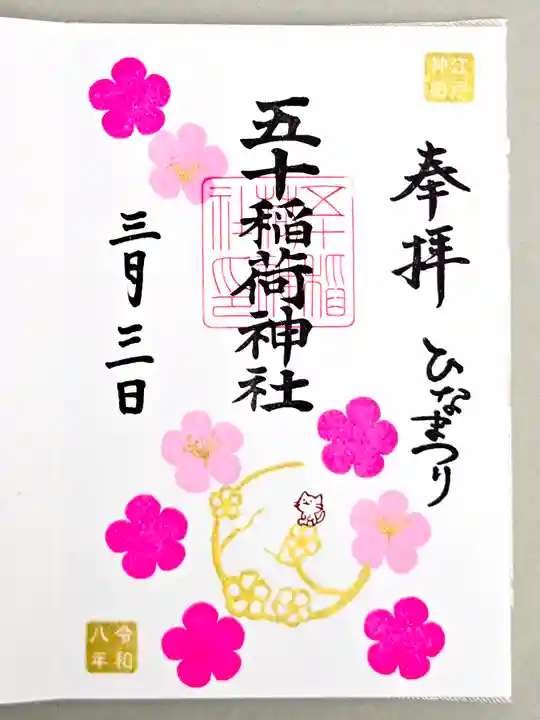 江戸
神田
奉拝
ひなまつり
五十稲荷神社
三月三日
令和
八年